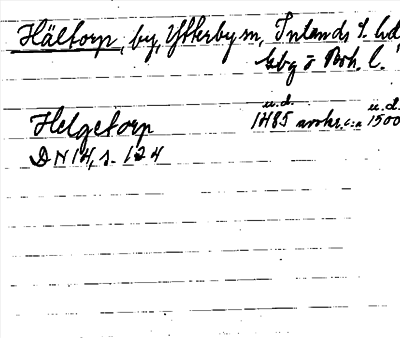 Hältorp, by, Ytterby sn, Inlands S. hd
Gbg o Boh. l.
u.d. u.d.
Helgetorp 1485 avskr. c:a 1500
DN 14, s. 124